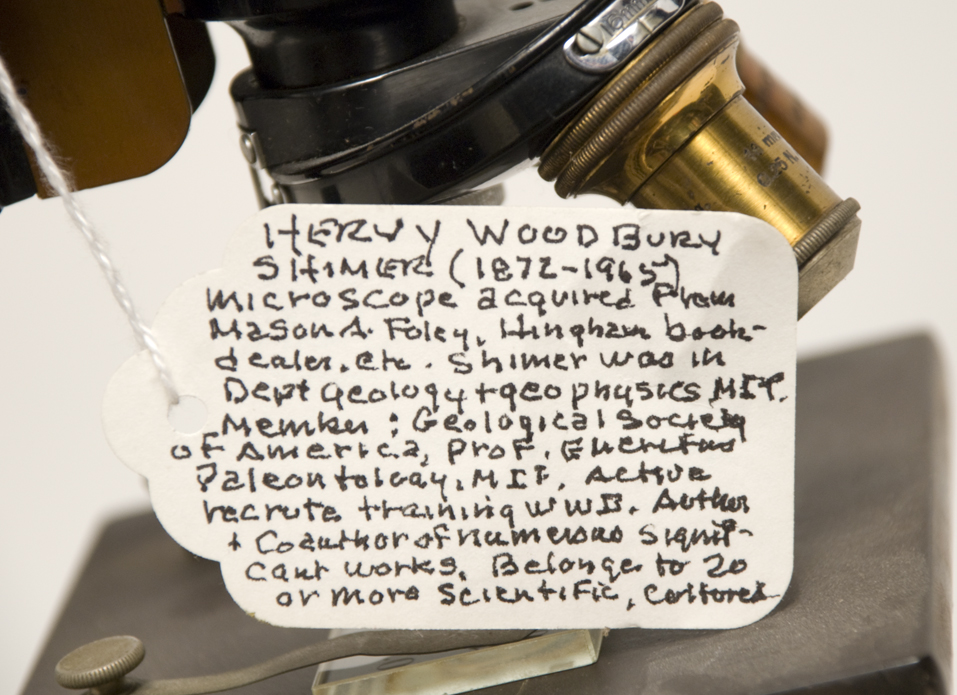 HERVY WOODBURY
SHIMER (1872-1965)
Microscope acquired From
Mason A. Foley, Hingham book-
dealer, etc. Shimer was in
Dept geology + geophysics MIT.
Member: Geological Society
of America, Prof. Emeritus
Paleontology, MIT. Active
recrute training WWII. Author
+ Coauthor of numerous signif-
cant works. Belongs to 20
or more Scientific,